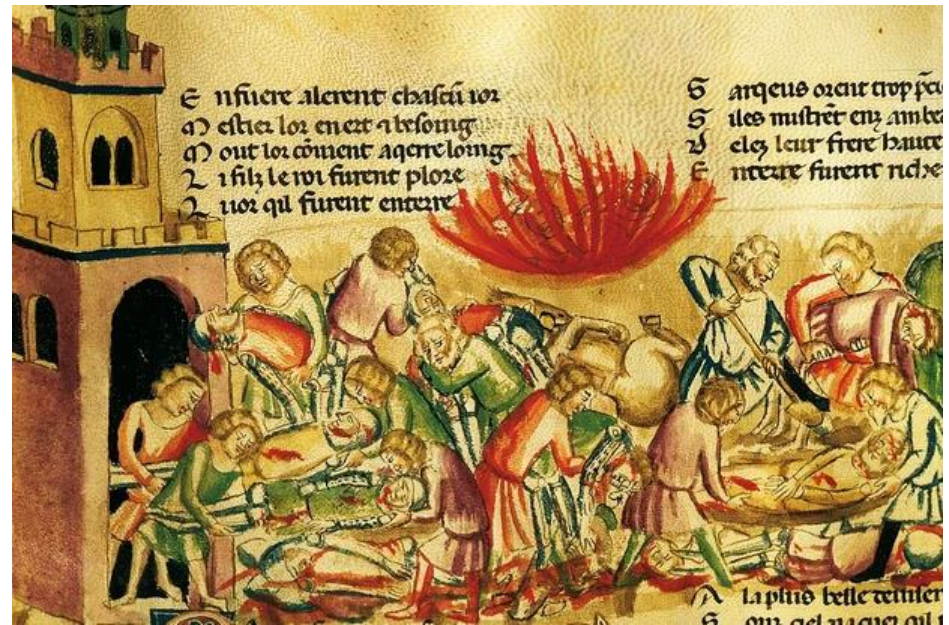 E nfuere alerent chascũ ior
M estier lor en ert ⁊ besoing
M out lor cõuient aqerre loing
L i filz le roi furent plore
L uor qil furent enterre
S arqeus orent trop
S iles mistrẽt enz
V elez leur frere haute
E nterre furent riche
A la plus belle
S